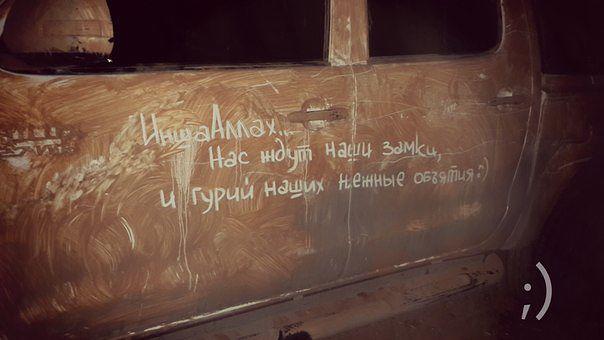 ИншаАллах...
Нас ждут наши замки,
и гурий наших нежные объятия:)
;)